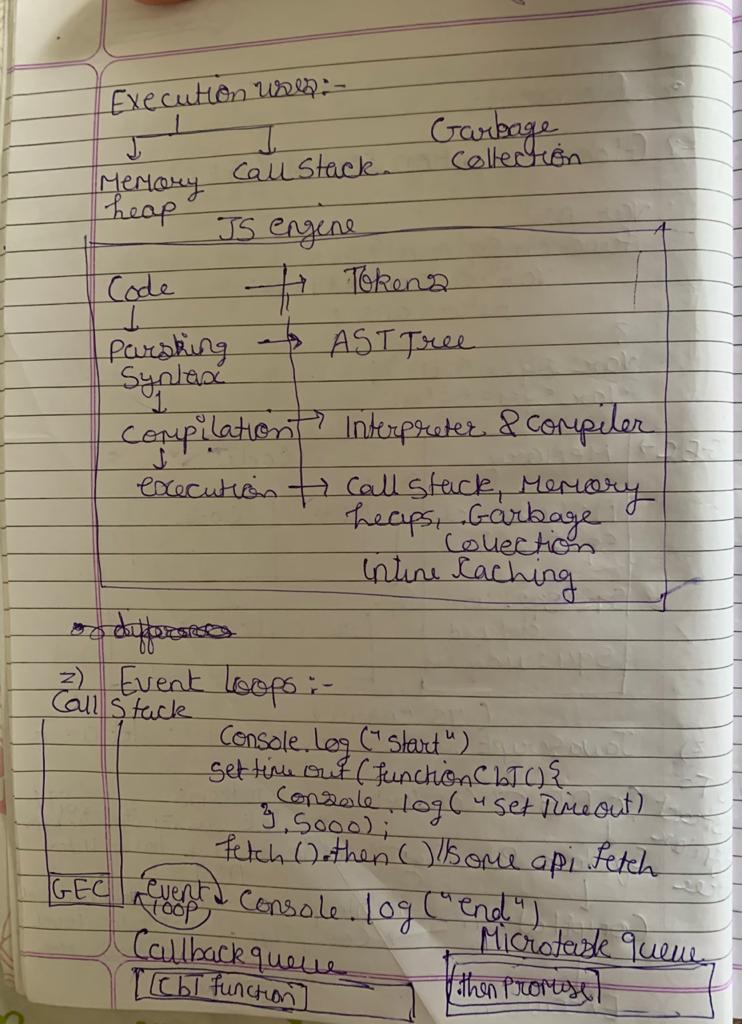 Execution uses:-
Memory heap
Call Stack.
Garbage Collection
JS engine
Code → Tokens
Parsking Syntax → AST Tree
Compilation → Interpreter & Compiler
execution → Call Stack, Memory
heaps, Garbage
Collection
Inline Caching
2) Event loops :-
Call Stack
Console.log ("start")
set time out (function CbT() {
Console.log ("set Timeout)
}, 5000);
fetch ().then ( ) //some api fetch
GEC
event loop
Console.log ("end")
Callback queue
Microtask queue
CbT function
.then promise